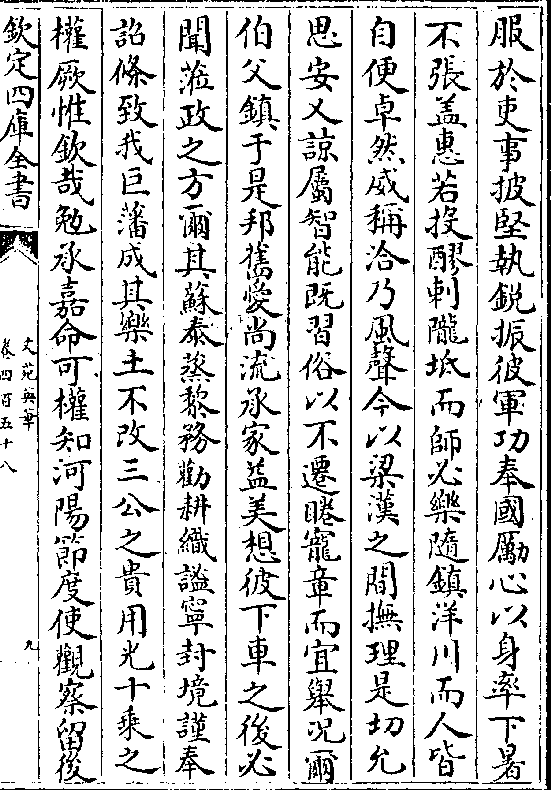 服於吏事披堅執鋭振彼軍功奉國勵心以身率下暑
不張盖惠若投醪剌隴坻而師必樂隨鎮洋川而人皆
自便卓然威稱洽乃風聲今以梁漢之間撫理是切允
思安乂諒屬智能既習俗以不遷睠寵章而宜舉况爾
伯父鎮于是邦舊愛尚流承家益美想彼下車之後必
聞蒞政之方爾其蘇泰蒸黎務勸耕織謐寧封境謹奉
詔條致我巨藩成其樂土不改三公之貴用光十乗之
權厥惟欽哉勉承嘉命可權知河陽節度使觀察留後
欽定四庫全書
文苑英華
卷四百五十八
九